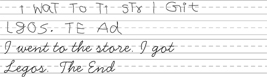 I WaT To Ti STR I Git
LgOS. TE Ad
I went to the store. I got
Legos. The End